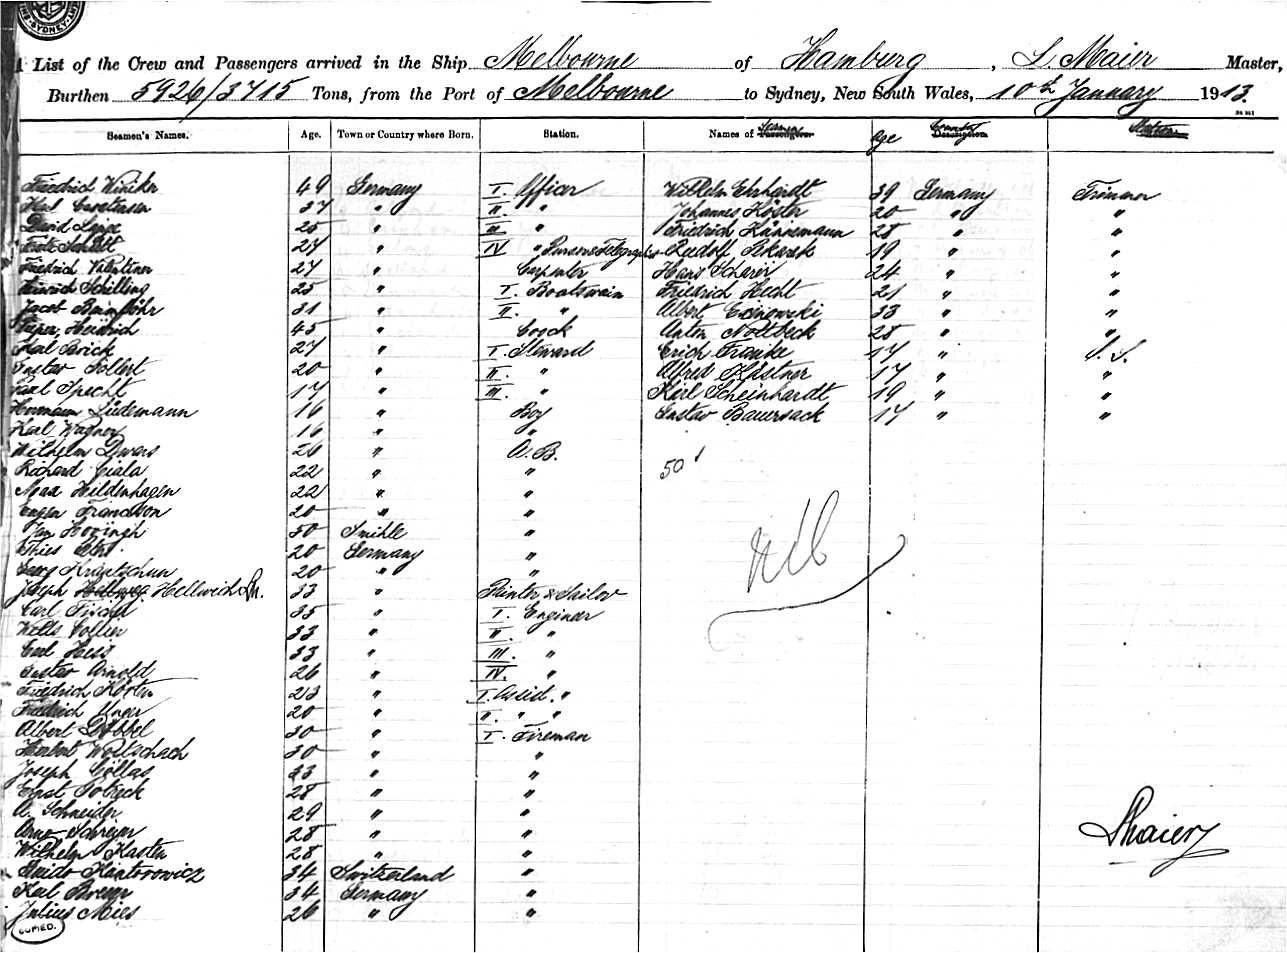 SYDNEY
List of the Crew and Passengers arrived in the Ship Melbourne of Hamburg, Maier Master,
Burthen 5926/3715 Tons, from the Port of Melbourne to Sydney, New South Wales, 10th January 1913.
Seamen's Names. Age. Town or Country where Born. Station. Names of Age
Friedrich Winiker 49 Germany I. Officer Wilhelm Ehrhardt 39 Germany Trimmer
Karl Carstensen 37 " II. " Johannes Köster 20 " "
David Lange 25 " III " Friedrich Hännemann 28 " "
27 " IV " Purser & Telegraphist Rudolf 19 " "
Friedrich Valentiner 27 " Carpenter Hans Scherer 24 " "
Heinrich Schilling 25 " I. Boatswain Friedrich Hecht 21 " "
Jacob 31 " II. " Albert 33 " "
Heidrich 45 " Coock Anton Nottbeck 28 " "
Karl Brick 27 " I. Steward Erich Franke 17 " S. S.
Gustav 20 " II. " Alfred Köstner 17 " "
Paul Specht 17 " III. " Karl Scheinhardt 19 " "
Hermann Lüdemann 16 " Boy Gustav Bauersack 17 " "
Karl Wagner 16 " "
Wilhelm 26 " A.B.
Richard Ciala 22 " " 50
Max Hildenhagen 22 " "
Eugen 20 " "
Jan 50 "
Thies 20 Germany "
Georg 20 " "
Joseph Hellwich 33 " Painter & Sailor
Carl 35 " I. Engineer
Wells Collier 33 " II. "
Carl Hess 33 " III. "
Gustav Arnold 26 " IV. "
Friedrich Körten 23 " I. Assist. "
Friedrich Unger 20 " II. " "
Albert Döbbel 30 " I. Fireman
Herbert 30 " "
Joseph Cöllas 23 " "
Ernst 28 " "
A. Schneider 29 " "
28 " "
Wilhelm Kasten 28 " "
Guido Kantorowicz 34 Switzerland "
Karl 34 Germany "
Julius Mies 26 " "
COPIED.